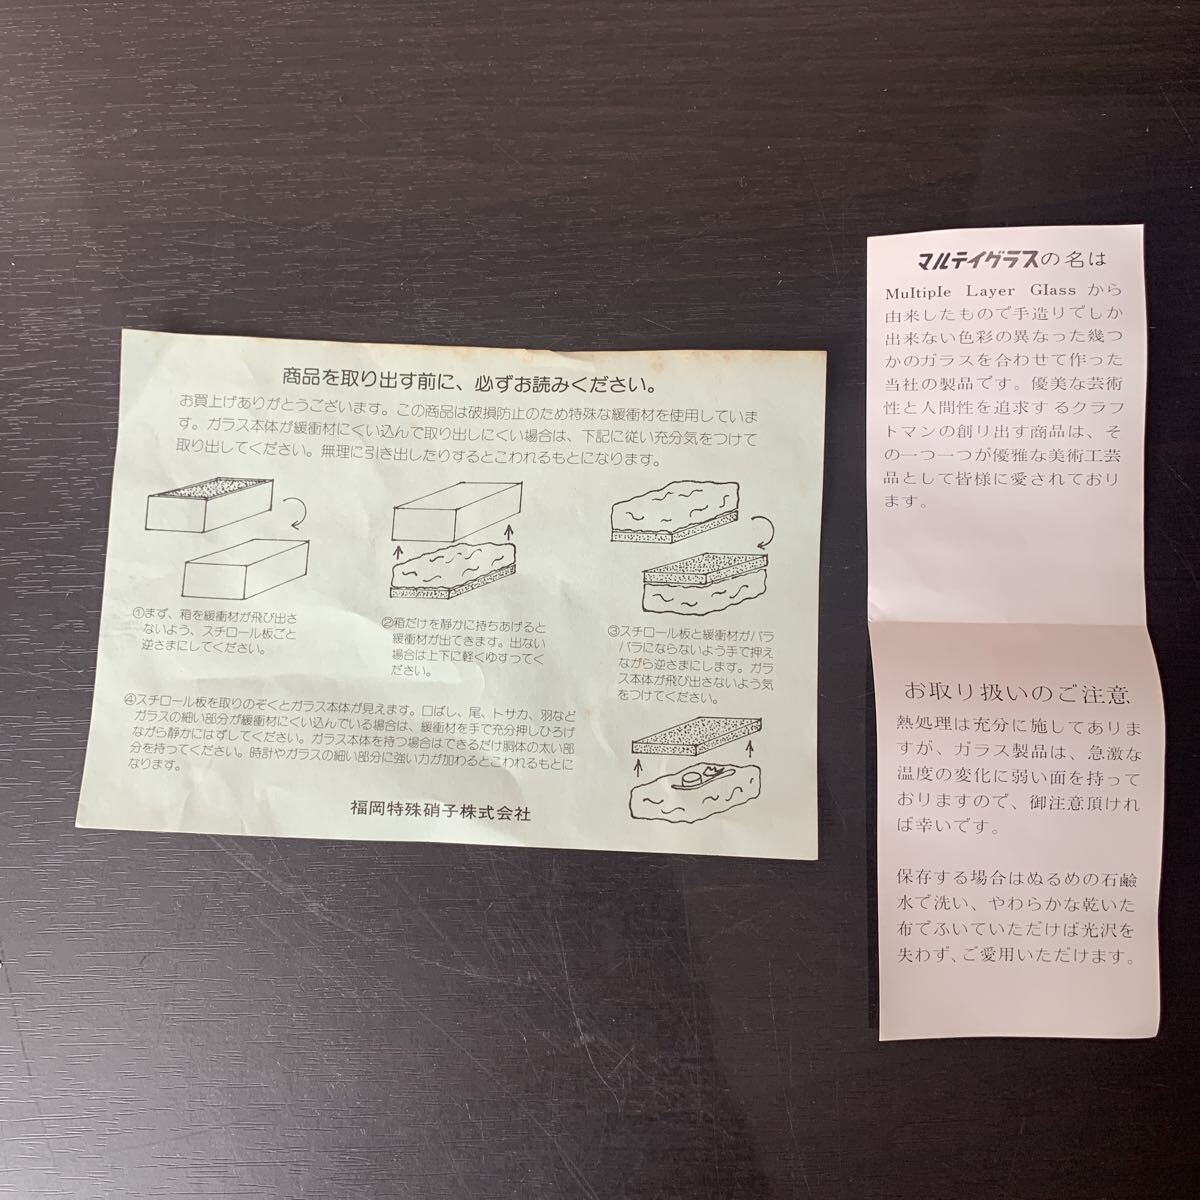 商品を取り出す前に、必ずお読みください。
お買上げありがとうございます。この商品は破損防止のため特殊な緩衝材を使用していま
す。ガラス本体が緩衝材にくい込んで取り出しにくい場合は、下記に従い充分気をつけて
取り出してください。無理に引き出したりするとこわれるもとになります。
①まず、箱を緩衝材が飛び出さ
ないよう、スチロール板ごと
逆さまにしてください。
②箱だけを静かに持ちあげると
緩衝材が出てきます。出ない
場合は上下に軽くゆすってく
ださい。
③スチロール板と緩衝材がバラ
バラにならないよう手で押え
ながら逆さまにします。ガラ
ス本体が飛び出さないよう気
をつけてください。
④スチロール板を取りのぞくとガラス本体が見えます。口ばし、尾、トサカ、羽など
ガラスの細い部分が緩衝材にくい込んでいる場合は、緩衝材を手で充分押しひろげ
ながら静かにはずしてください。ガラス本体を持つ場合はできるだけ胴体の太い部
分を持ってください。時計やガラスの細い部分に強い力が加わるとこわれるもとに
なります。
福岡特殊硝子株式会社
マルテイグラスの名は
Multiple Layer Glass から
由来したもので手造りでしか
出来ない色彩の異なった幾つ
かのガラスを合わせて作った
当社の製品です。優美な芸術
性と人間性を追求するクラフ
トマンの創り出す商品は、そ
の一つ一つが優雅な美術工芸
品として皆様に愛されており
ます。
お取り扱いのご注意
熱処理は充分に施してありま
すが、ガラス製品は、急激な
温度の変化に弱い面を持って
おりますので、御注意頂けれ
ば幸いです。
保存する場合はぬるめの石鹼
水で洗い、やわらかな乾いた
布でふいていただけば光沢を
失わず、ご愛用いただけます。